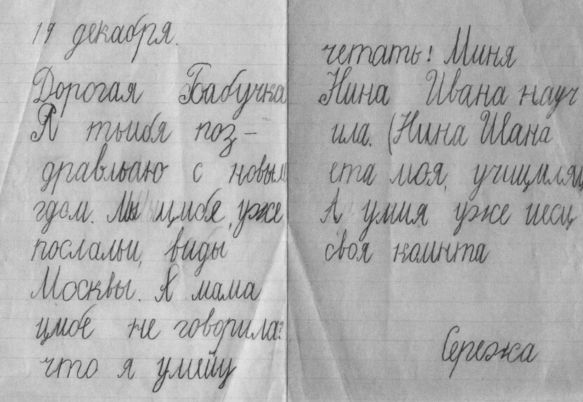 19 декабря.
Дорогая Бабучка
Я тыибя поз-
дравльаю с новым
гдом. Мы цибе уже
послальи, виды
Москвы. А мама
цмбе не говорила:
что я умейу
четать! Миня
Нина Ивана науч
ила. (Нина Ивана
ета моя, учицмля
А умия уже иесц
своя комнта
Сережа